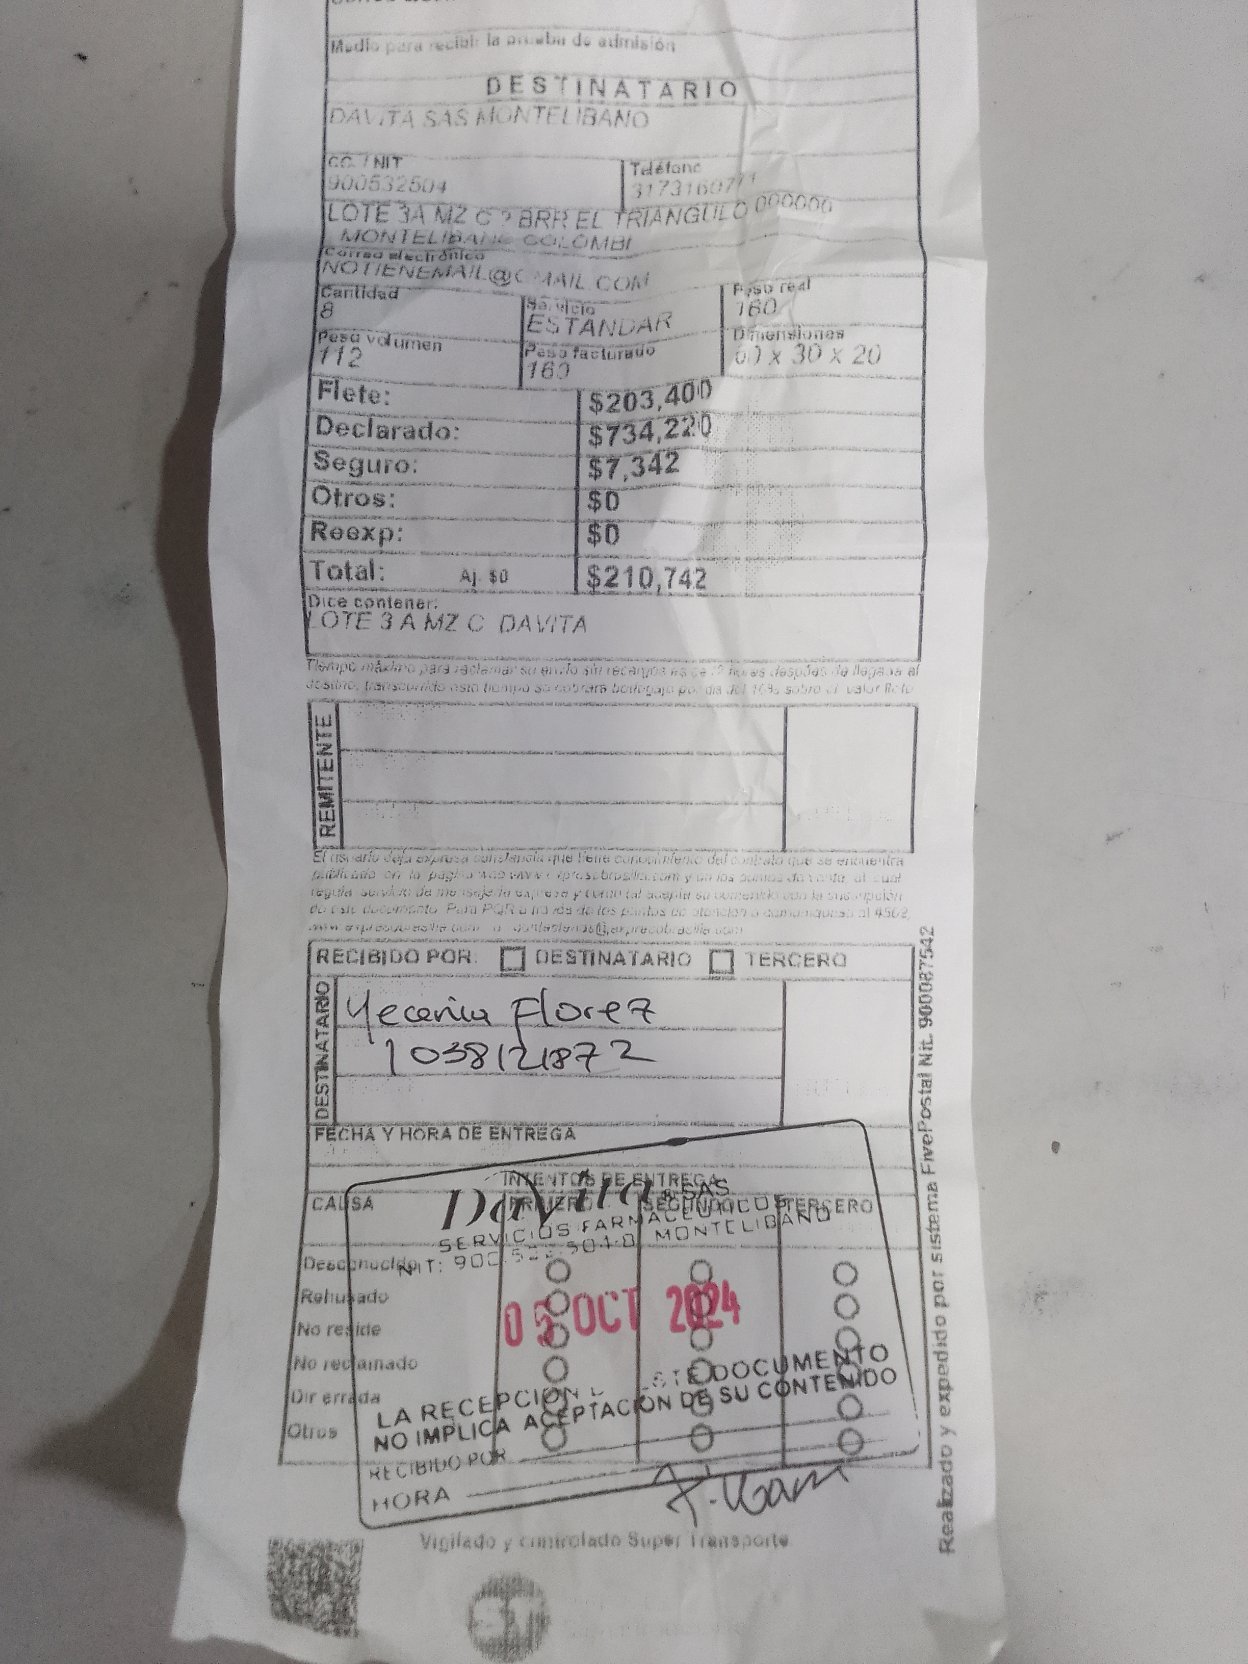 Medio para recibir la prueba de admisión
DESTINATARIO
DAVITA SAS MONTELIBANO
CC. / NIT
900532504
Teléfono
31731607
LOTE 3A MZ C 2 BRR EL TRIANGULO 000000
MONTELIBANO COLOMBI
Correo electrónico
NOTIENEMAIL@GMAIL.COM
Cantidad
8
Servicio
ESTANDAR
Peso real
160
Peso volumen
112
Peso facturado
160
Dimensiones
60 x 30 x 20
Flete: $203,400
Declarado: $734,220
Seguro: $7,342
Otros: $0
Reexp: $0
Total: Aj. $0 $210,742
Dice contener:
LOTE 3 A MZ C DAVITA
Tiempo máximo para reclamar su envío sin recargos es de 72 horas después de llegada al
destino, transcurrido este tiempo se cobrará bodegaje por día del 10% sobre el valor flete
REMITENTE
El usuario deja expresa constancia que tiene conocimiento del contrato que se encuentra
publicado en la página web www.expresobrasilia.com y en los puntos de venta, el cual
regula servicio de mensajería expresa y como tal acepta su contenido con la suscripción
de este documento. Para PQR a través de los puntos de atención o comuníquese al 4502,
www.expresobrasilia.com o contactenos@expresobrasilia.com
RECIBIDO POR: DESTINATARIO TERCERO
DESTINATARIO
Yecenia Florez
1038121872
FECHA Y HORA DE ENTREGA
INTENTOS DE ENTREGA
CAUSA PRIMERO SEGUNDO TERCERO
Desconocido
Rehusado
No reside
No reclamado
Dir errada
Otros
DaVita SAS
SERVICIOS FARMACEUTICOS
NIT: 900 MONTELIBANO
05 OCT 2024
LA RECEPCION ESTE DOCUMENTO
NO IMPLICA ACEPTACIÓN DE SU CONTENIDO
RECIBIDO POR
HORA
Vigilado y controlado Super Transporte
Realizado y expedido por sistema FivePostal Nit. 900087542